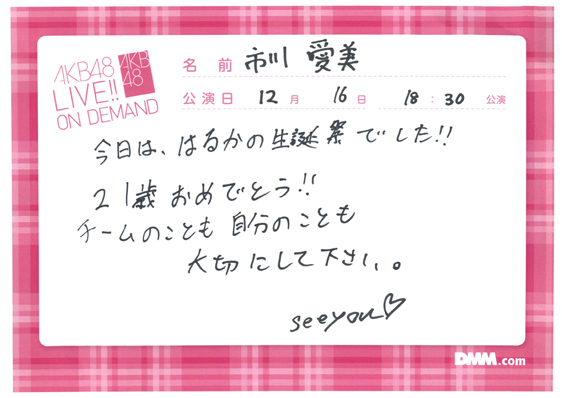 AKB48
LIVE!!
ON DEMAND
AKB
48
名 前 市川 愛美
公演日 12 月 16 日 18 : 30 公演
今日は、はるかの生誕祭でした!!
21歳おめでとう!!
チームのことも自分のことも
大切にして下さい。
seeyou♡
DMM.com